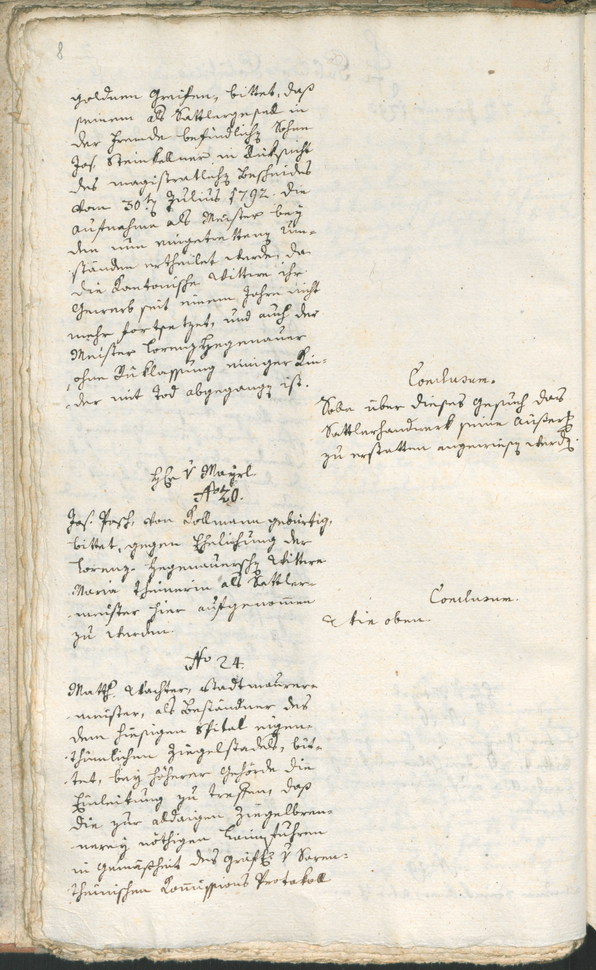 8
goldnen Greifen, bittet, daß
seinem als Sattlergesell in
der Fremde befindlichen Sohne
Jos. Steinkellner in Rüksicht
des magistratlichen Bescheides
vom 30ten Julius 1792. die
Aufnahme als Meister bey
den nun eingetrettenen Um¬
ständen ertheilet werde, da
die Kantonische Wittwe ihr
Gewerb seit einem Jahre nicht
mehr fortsetzet, und auch der
Meister Lorenz Hegenauer
ohne Rüklassung einiger Kin¬
der mit Tod abgegangen ist.
Conclusum.
Habe über dieses Gesuch das
Sattlerhandwerk seine Äußerung
zu erstatten angewiesen werde.
HE. v Mayrl
No 20.
Jos. Pasch, von Kollmann gebürtig,
bittet, gegen Ehelichung der
Lorenz Hegenauerschen Wittwe
Maria Theinerin als Sattler¬
meister hier aufgenommen
zu werden.
Conclusum.
Wie oben.
No 24.
Math. Wachter, Stadtmaurer¬
meister, als Beständner des
dem hiesigen Spital eigen¬
thümlichen Ziegelstadels, bit¬
tet, bey höherer Gehörde die
Einleitung zu treffen, daß
die zur alldaigen Ziegelbren¬
nerey nöthigen Leimfuhren
in Gemäßheit des Gräfl. v Saren¬
theinischen Kommissions Protokoll